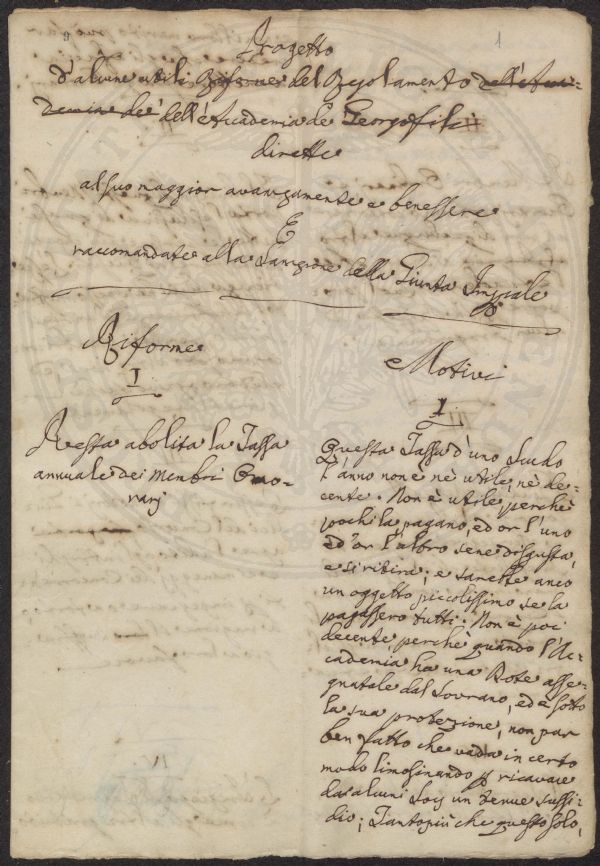 1
Progetto
d'alcune utili Riforme del Regolamento dell'Acca-
demia de' dell'Accademia de Georgofili
dirette
al suo maggior avanzamento e benessere
E
raccomandate alla Sanzione della Giunta Impiale
Riforme
I
Resta abolita la Tassa
annuale dei Membri Ono-
rarj
Motivi
I
Questa Tassa d'uno Scudo
l'anno non è nè utile, nè de-
cente. Non è utile, perchè
pochi la pagano, ed or l'uno
ed or l'altro se ne disgusta,
e si ritira; e sarebbe anco
un oggetto piccolissimo se la
pagassero tutti. Non è poi
decente, perchè quando l'Ac-
cademia ha una Dote asse-
gnatale dal Sovrano, ed è sotto
la sua protezione, non par
ben fatto che vada in certo
modo limosinando p ricavare
da alcuni Socj un tenue sussi-
dio; Tanto più che questo solo,